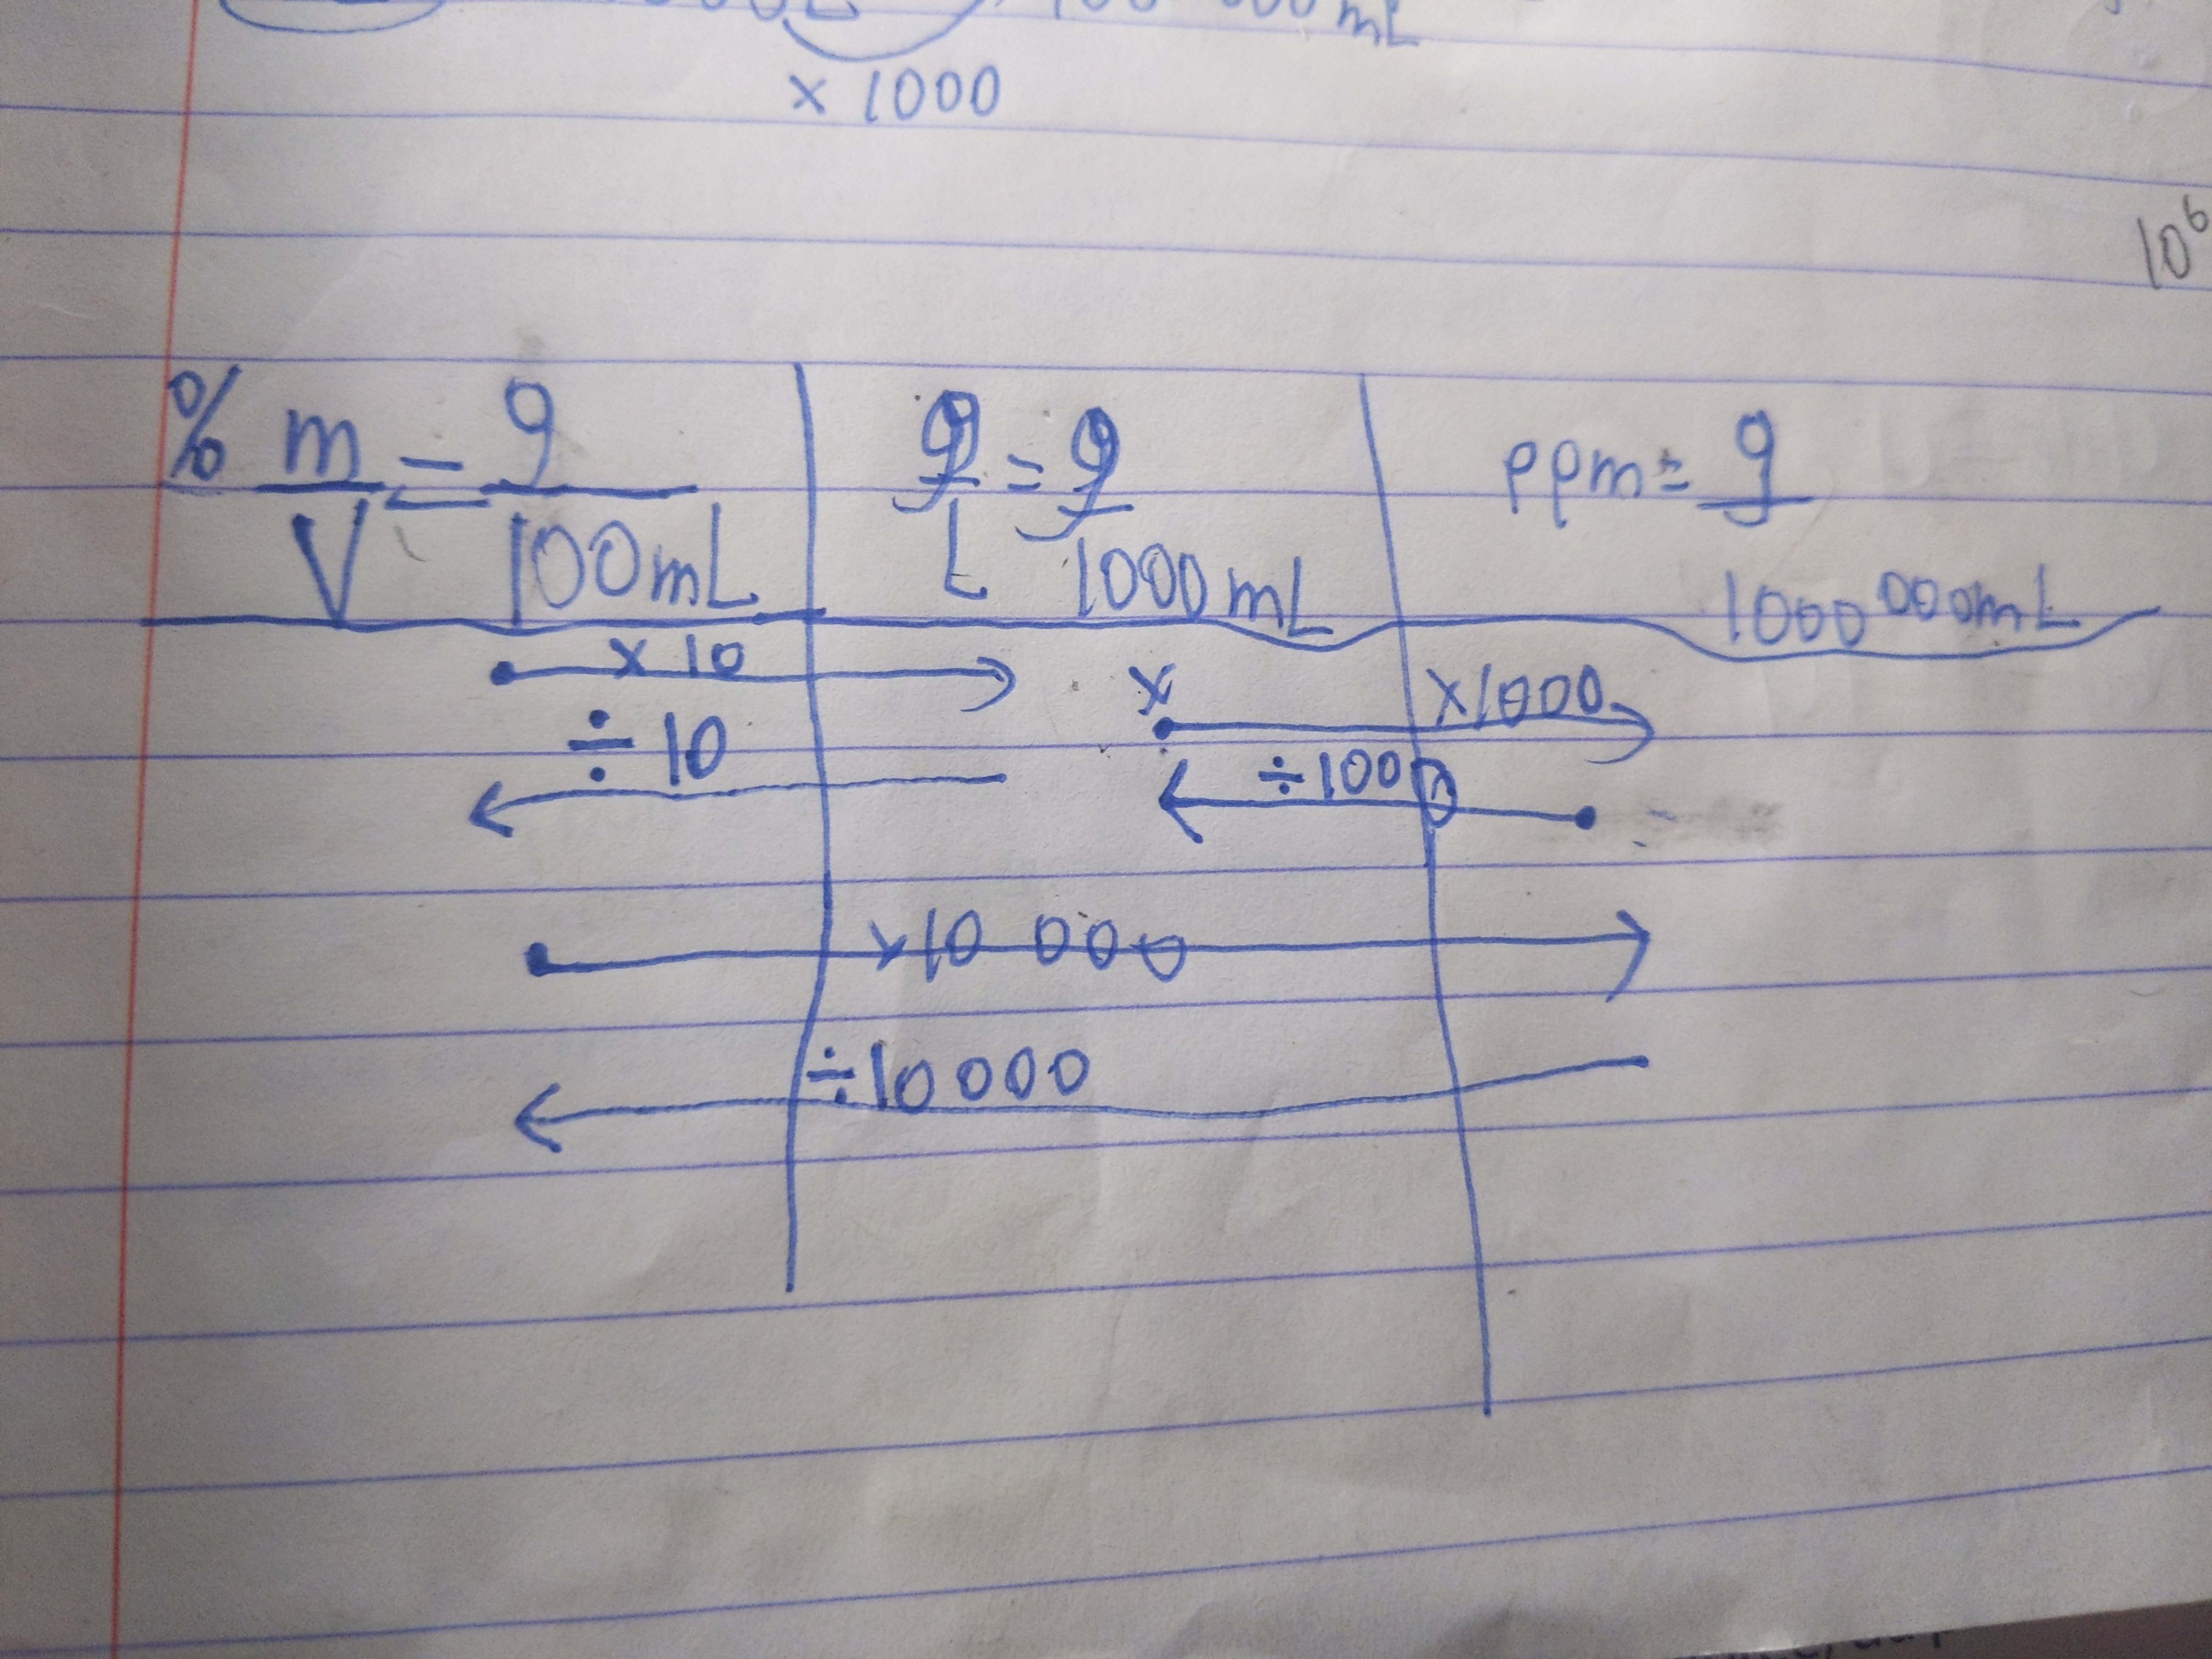 000 mL
x 1000
10⁶
% m/V = g/100mL
g/L = g/1000mL
ppm = g/1000 000mL
x 10
x
x1000
÷ 10
÷1000
x10 000
÷10000